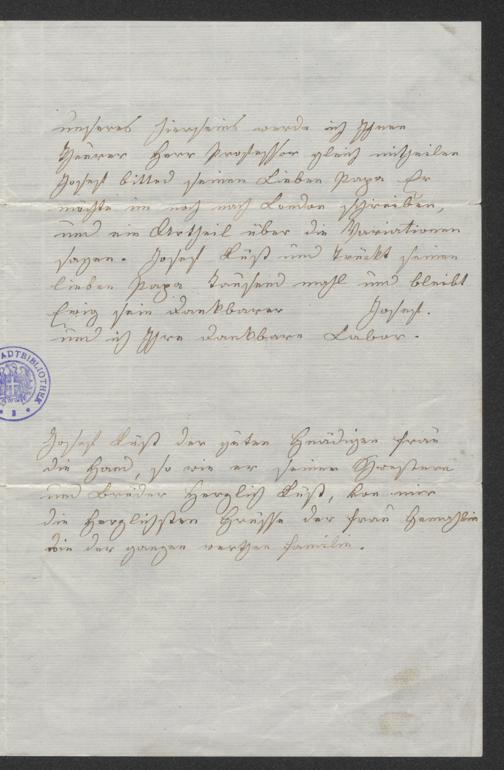 unseres hierseins werde ich Ihnen
Theurer Herr Professor gleich mitheilen
Josef bitted seinen Lieben Papa Er
möchte im noch nach London schreiben,
und ein Urtheil über die Variationen
sagen. Josef Küßt und Drückt seinen
lieben Papa Tausend mahl und bleibt
Ewig sein Dankbarer Josef.
und ich Ihre Dankbare Labor.
Josef Küßt der guten Gnädigen Frau
die Hand, so wie er seinen Schwestern
und Brüder Herzlich Küßt, Von mir
die Herzlichsten Grüsse der Frau Gemahlin
wie der ganzen werthen Familie.
STADTBIBLIOTHEK